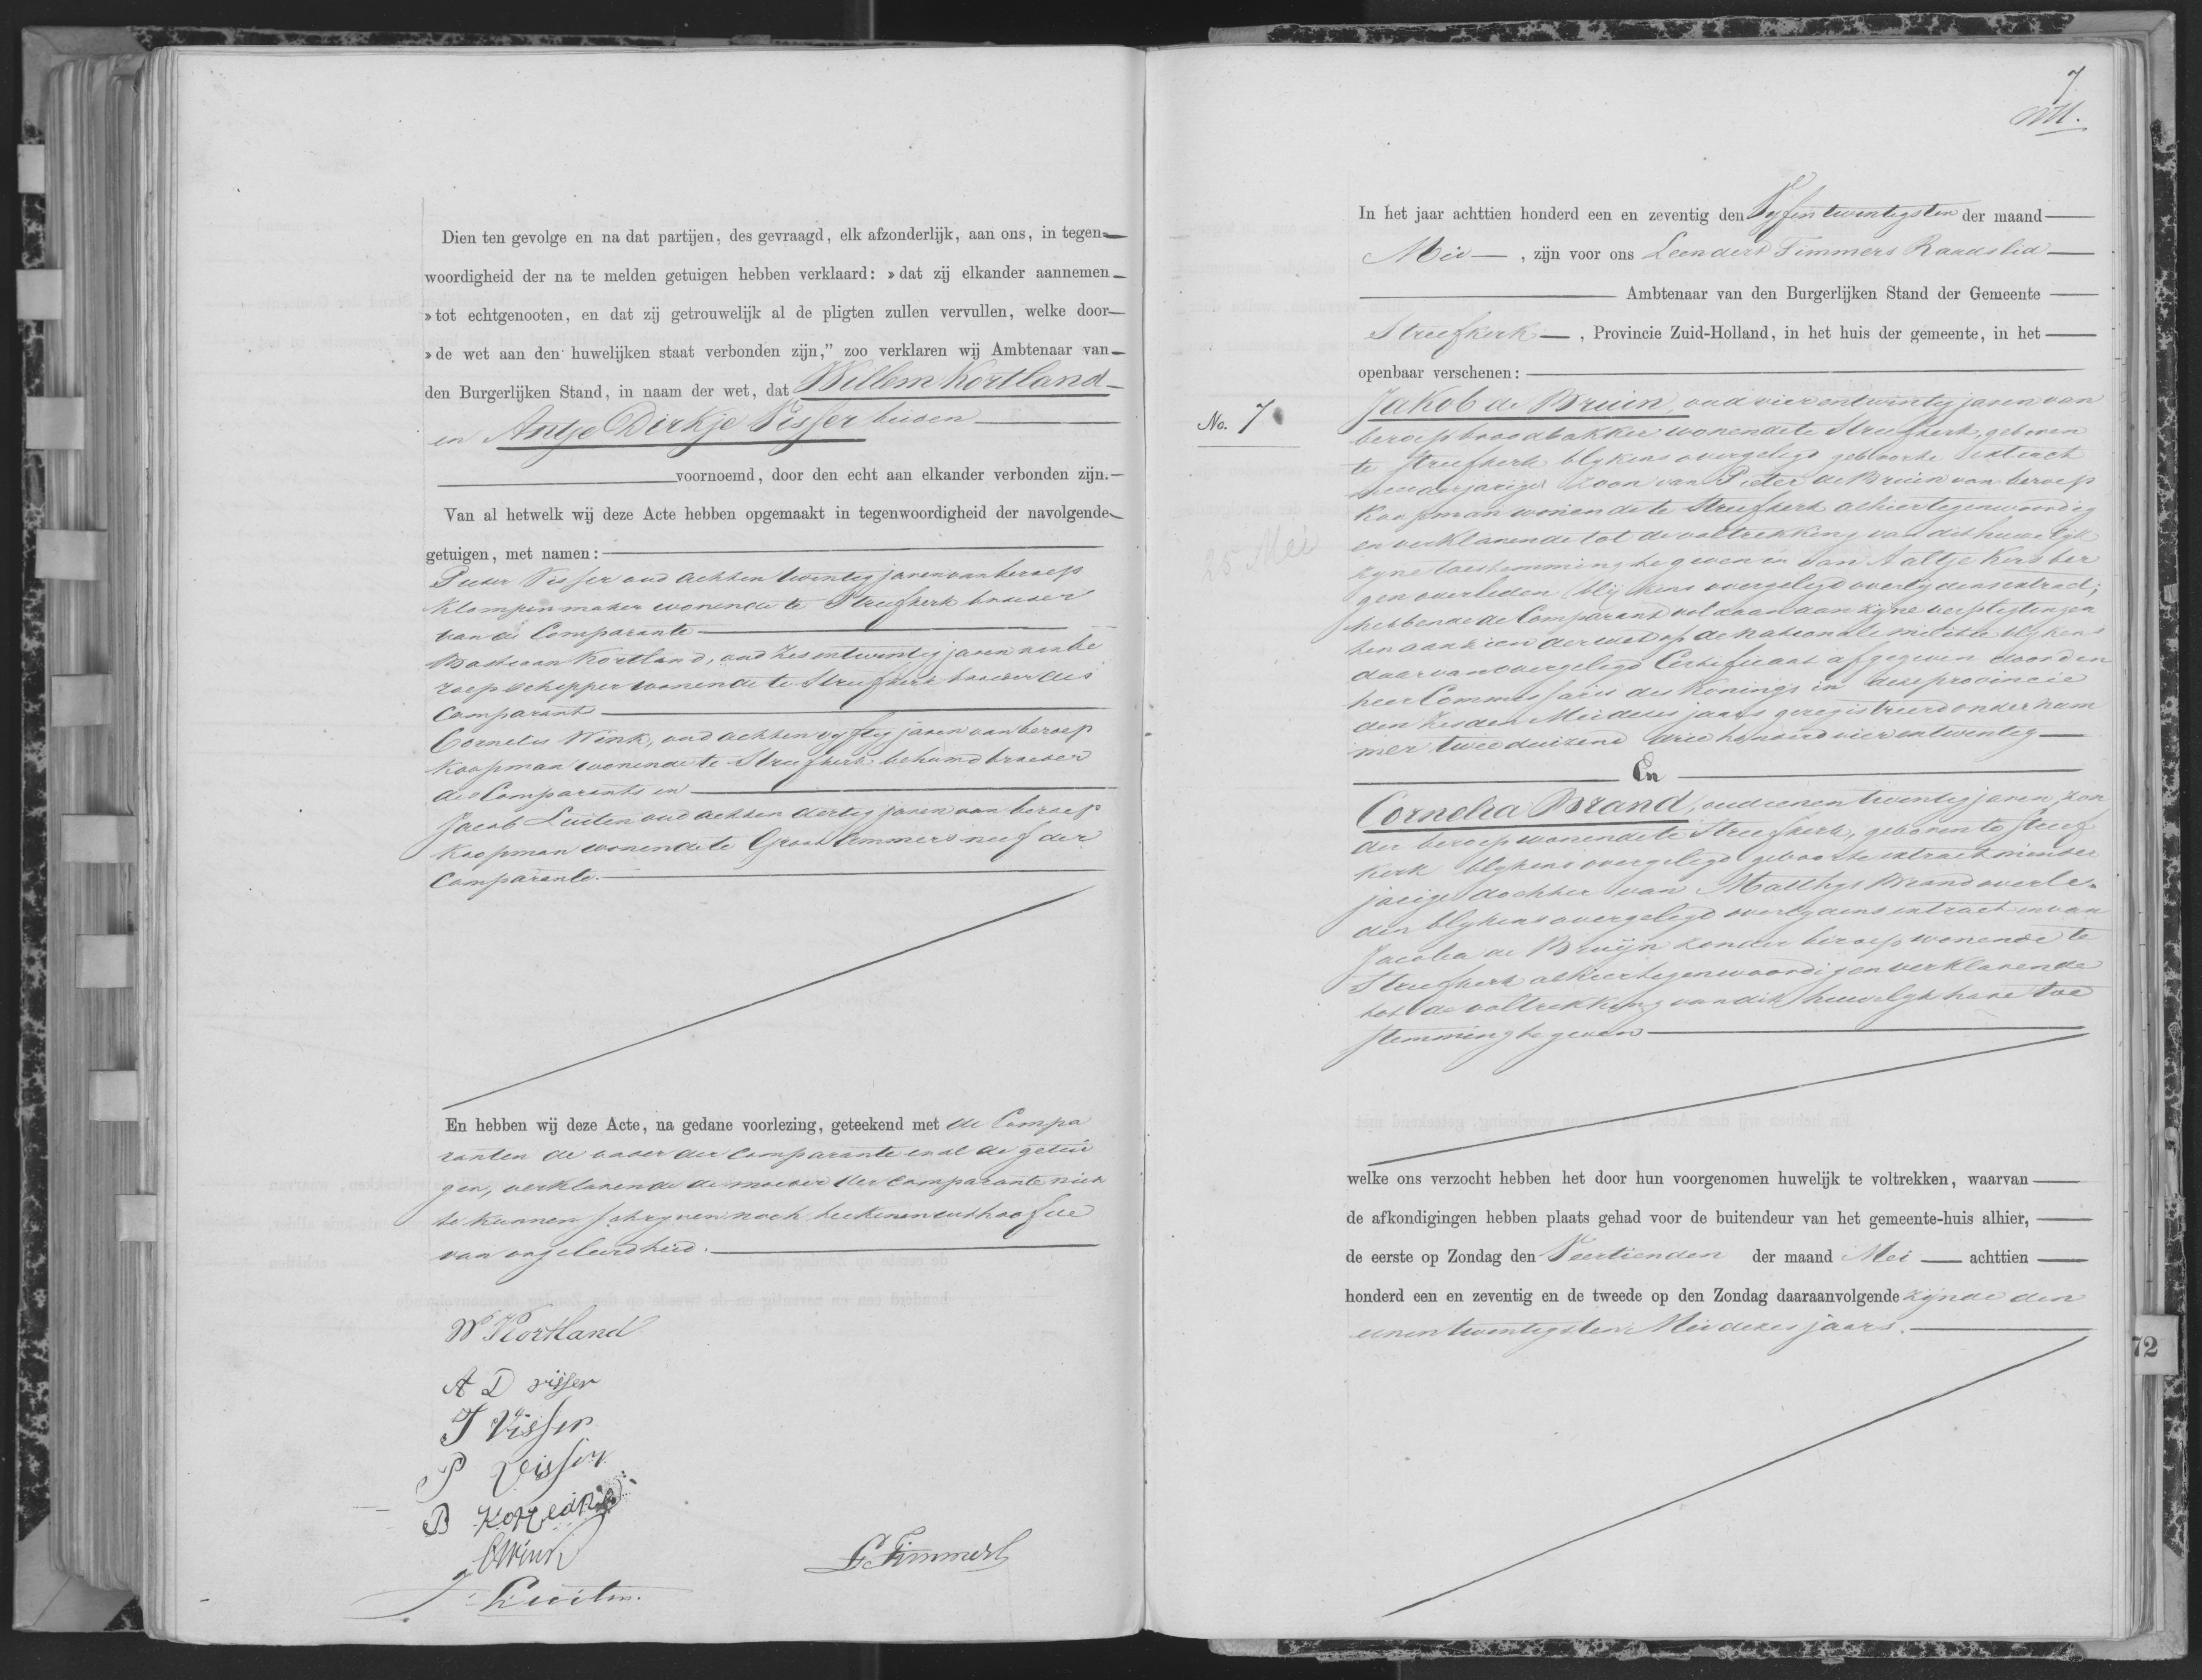 Dien ten gevolge en na dat partijen, des gevraagd, elk afzonderlijk, aan ons, in tegen-
woordigheid der na te melden getuigen hebben verklaard: »dat zij elkander aannemen
»tot echtgenooten, en dat zij getrouwelijk al de pligten zullen vervullen, welke door
»de wet aan den huwelijken staat verbonden zijn," zoo verklaren wij Ambtenaar van
den Burgerlijken Stand, in naam der wet, dat Willem Kortland
en Antje Dirkje Visser beiden
voornoemd, door den echt aan elkander verbonden zijn.
Van al hetwelk wij deze Acte hebben opgemaakt in tegenwoordigheid der navolgende
getuigen, met namen:
Pieter Visser oud achtentwintig jaren van beroep
klompenmaker wonende te Streefkerk broeder
van de Comparante
Bastiaan Kortland, oud zesentwintig jaren van be
roep schipper wonende te Streefkerk broeder des
Comparants
Cornelis Wink, oud achtenvyftig jaren van beroep
koopman wonende te Streefkerk behuwd broeder
des Comparants en
Jacob Luiten oud achtendertig jaren van beroep
koopman wonende te Groot Ammers neef der
Comparante.
En hebben wij deze Acte, na gedane voorlezing, geteekend met de Compa
ranten de vader der comparante en al de getui
gen, verklarende de moeder der Comparante niet
te kunnen schryven noch teekenen uit hoofde
van ongeleerdheid.
W Kortland
A D visser
T Visser
P Visser
B Kortland
C Wink
J Luiten.
L. Timmers
7
No. 7
25 Mei
In het jaar achttien honderd een en zeventig den Vyfentwintigsten der maand
Mei, zijn voor ons Leendert Timmers Raadslid
Ambtenaar van den Burgerlijken Stand der Gemeente
Streefkerk, Provincie Zuid-Holland, in het huis der gemeente, in het
openbaar verschenen:
Jakob de Bruin, oud vierentwintig jaren van
beroep broodbakker wonende te Streefkerk, geboren
te Streefkerk blykens overgelegd geboorte extract
meerderjarige zoon van Pieter de Bruin van beroep
koopman wonende te Streefkerk alhier tegenwoordig
en verklarende tot de voltrekking van dit huwelyk
zyne toestemming te geven en van Aaltje Kersber
gen overleden blykens overgelegd overlydensextract;
hebbende de Comparant voldaan aan zyne verpligtingen
ten aanzien der wet op de nationale militie blykens
daarvan overgelegd Certificaat afgegeven door den
heer Commissaris des Konings in deze provincie
den zesden Mei dezes jaars geregistreerd onder num
mer tweeduizend driehonderd vierentwintig
En
Cornelia Brand, oud eenentwintig jaren zon
der beroep wonende te Streefkerk, geboren te Streef
kerk blykens overgelegd geboorte extract minder
jarige dochter van Matthys Brand overle-
den blykens overgelegd overlydens extract en van
Jacoba de Bruijn zonder beroep wonende te
Streefkerk alhier tegenwoordig en verklarende
tot de voltrekking van dit huwelyk hare toe
stemming te geven
welke ons verzocht hebben het door hun voorgenomen huwelijk te voltrekken, waarvan
de afkondigingen hebben plaats gehad voor de buitendeur van het gemeente-huis alhier,
de eerste op Zondag den Veertienden der maand Mei achttien
honderd een en zeventig en de tweede op den Zondag daaraanvolgende zynde den
eenentwintigsten Mei dezes jaars.
72